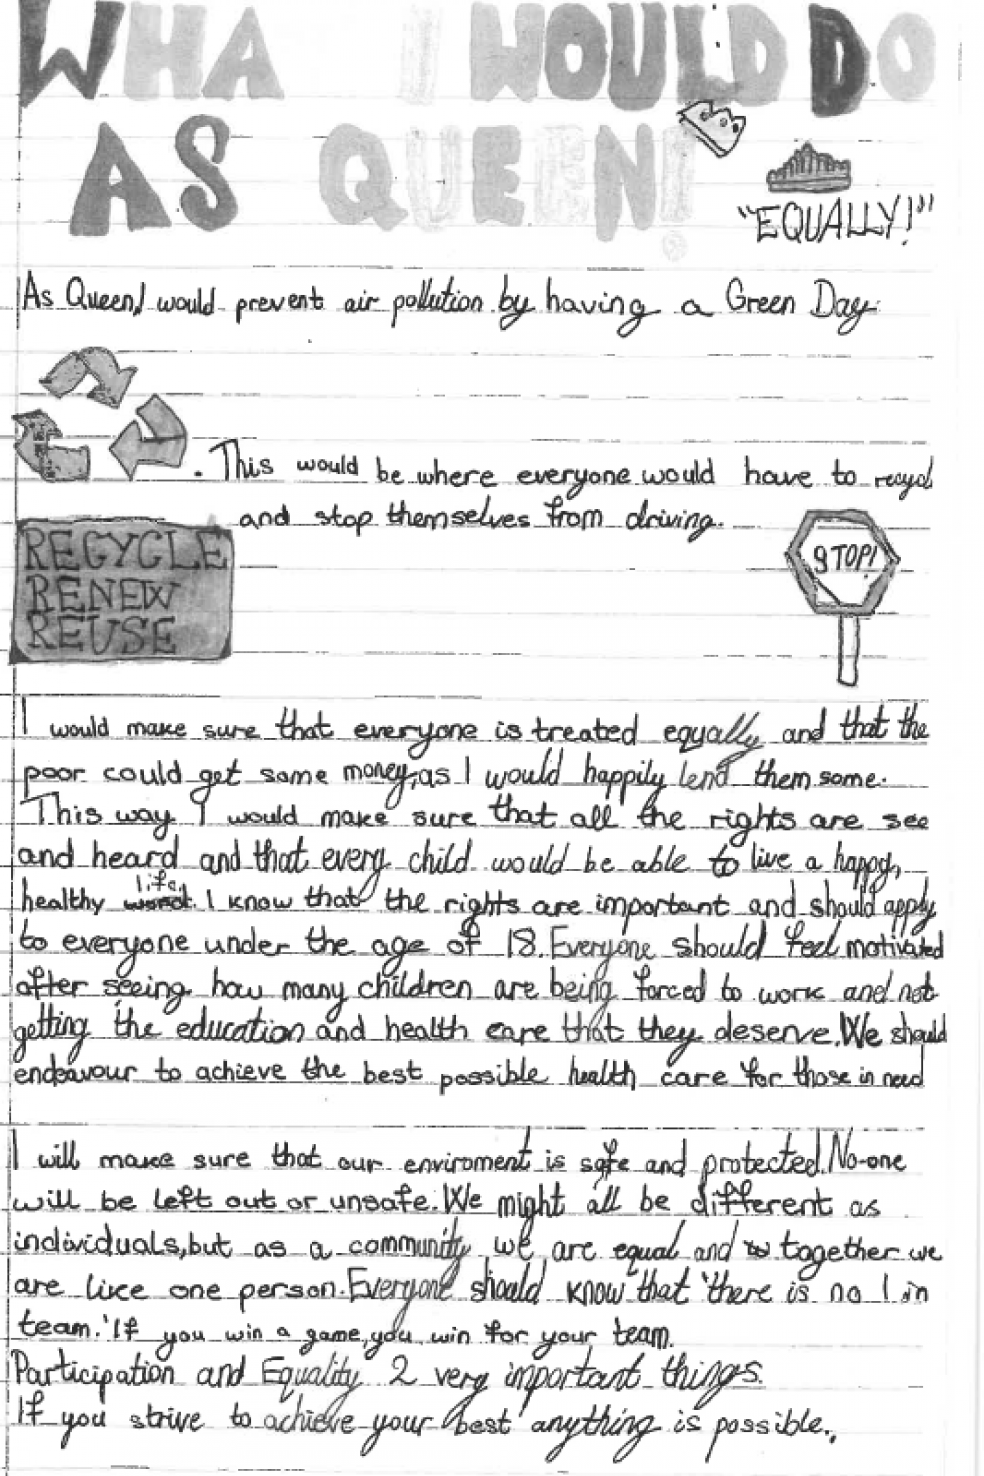 WHA I WOULD DO
AS QUEEN!
"EQUALLY!"
As Queen, I would prevent air pollution by having a Green Day.
. This would be where everyone would have to recycl
and stop themselves from driving.
RECYCLE
RENEW
REUSE
STOP!
I would make sure that everyone is treated equally and that the
poor could get some money, as I would happily lend them some.
This way I would make sure that all the rights are see
and heard and that every child would be able to live a happy,
healthy life. I know that the rights are important and should apply
to everyone under the age of 18. Everyone should feel motivated
after seeing how many children are being forced to work and not
getting the education and health care that they deserve. We should
endeavour to achieve the best possible health care for those in need
I will make sure that our enviroment is safe and protected. No-one
will be left out or unsafe. We might all be different as
individuals, but as a community we are equal and together we
are like one person. Everyone should know that 'there is no I in
team.' If you win a game, you win for your team.
Participation and Equality 2 very important things.
If you strive to achieve your best anything is possible..